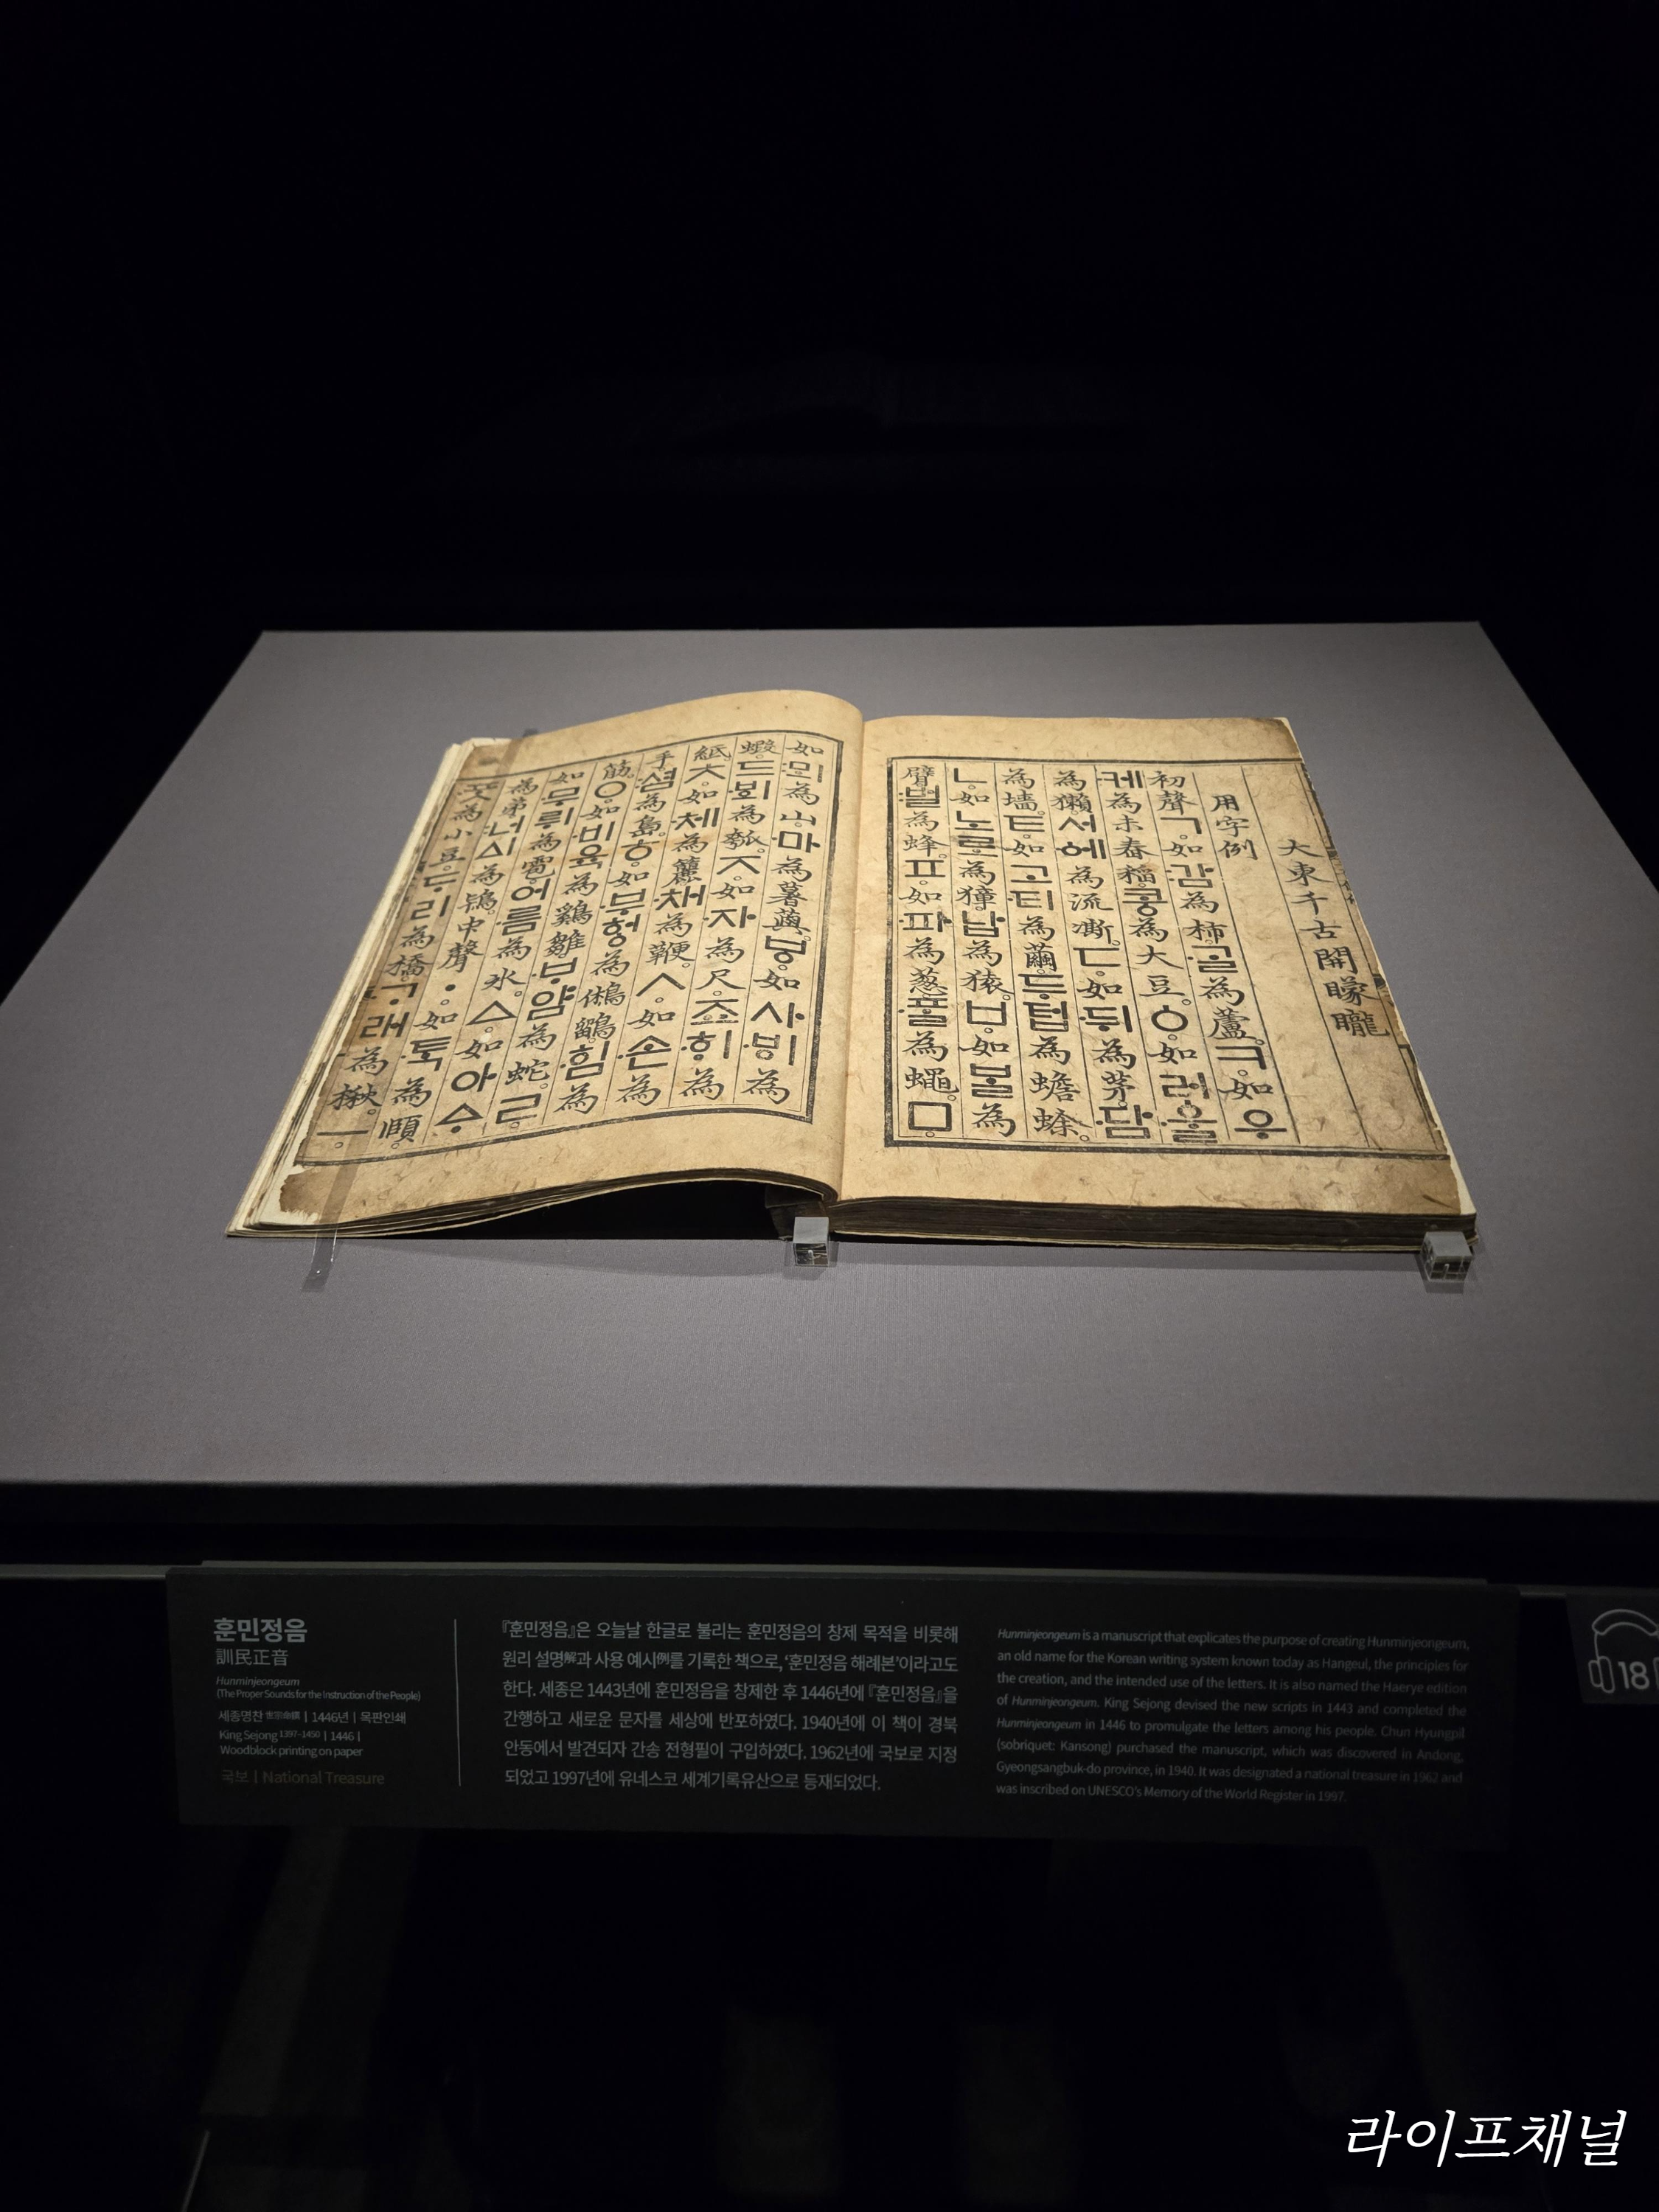 大東千古開矇矓
用字例
初聲ㄱ。如:감為柿。·ᄀᆞᆯ為蘆。ㅋ。如우
·케為未舂稻。콩為大豆。ㆁ。如러·울
為獺。서·에為流凘。ㄷ。如·뒤為茅。·담
為墻。ㅌ。如고·티為繭。두텁為蟾蜍。
ㄴ。如노로為獐。납為猿。ㅂ。如ᄇᆞᆯ為
臂。:벌為蜂。ㅍ。如·파為葱。·ᄑᆞᆯ為蠅。ㅁ。
如:뫼為山。·마為薯藇。ㅸ。如사·ᄫᅵ為
蝦。드·ᄫᅴ為瓠。ㅈ。如·자為尺。죠·ᄒᆡ為
紙。ㅊ。如·체為籭。·채為鞭。ㅅ。如·손為
手。:셤為島。ㅎ。如·부헝為鵂鶹。·힘為
筋。ㅇ。如·비육為鷄雛。·ᄇᆞ얌為蛇。ㄹ。
如·무뤼為雹。어·름為氷。ㅿ。如아ᅀᆞ
為弟。:너ᅀᅵ為鴇。中聲ㆍ。如·ᄐᆞᆨ為頤。
·ᄑᆞᆺ為小豆。ᄃᆞ리為橋。·ᄀᆞ래為楸。ㅡ。
훈민정음
訓民正音
Hunminjeongeum
(The Proper Sounds for the Instruction of the People)
세종명찬 世宗命撰 | 1446년 | 목판인쇄
King Sejong 1397-1450 | 1446 |
Woodblock printing on paper
국보 | National Treasure
『훈민정음』은 오늘날 한글로 불리는 훈민정음의 창제 목적을 비롯해
원리 설명解과 사용 예시例를 기록한 책으로, ‘훈민정음 해례본’이라고도
한다. 세종은 1443년에 훈민정음을 창제한 후 1446년에 『훈민정음』을
간행하고 새로운 문자를 세상에 반포하였다. 1940년에 이 책이 경북
안동에서 발견되자 간송 전형필이 구입하였다. 1962년에 국보로 지정
되었고 1997년에 유네스코 세계기록유산으로 등재되었다.
Hunminjeongeum is a manuscript that explicates the purpose of creating Hunminjeongeum,
an old name for the Korean writing system known today as Hangeul, the principles for
the creation, and the intended use of the letters. It is also named the Haerye edition
of Hunminjeongeum. King Sejong devised the new scripts in 1443 and completed the
Hunminjeongeum in 1446 to promulgate the letters among his people. Chun Hyungpil
(sobriquet: Kansong) purchased the manuscript, which was discovered in Andong,
Gyeongsangbuk-do province, in 1940. It was designated a national treasure in 1962 and
was inscribed on UNESCO's Memory of the World Register in 1997.
18
라이프채널